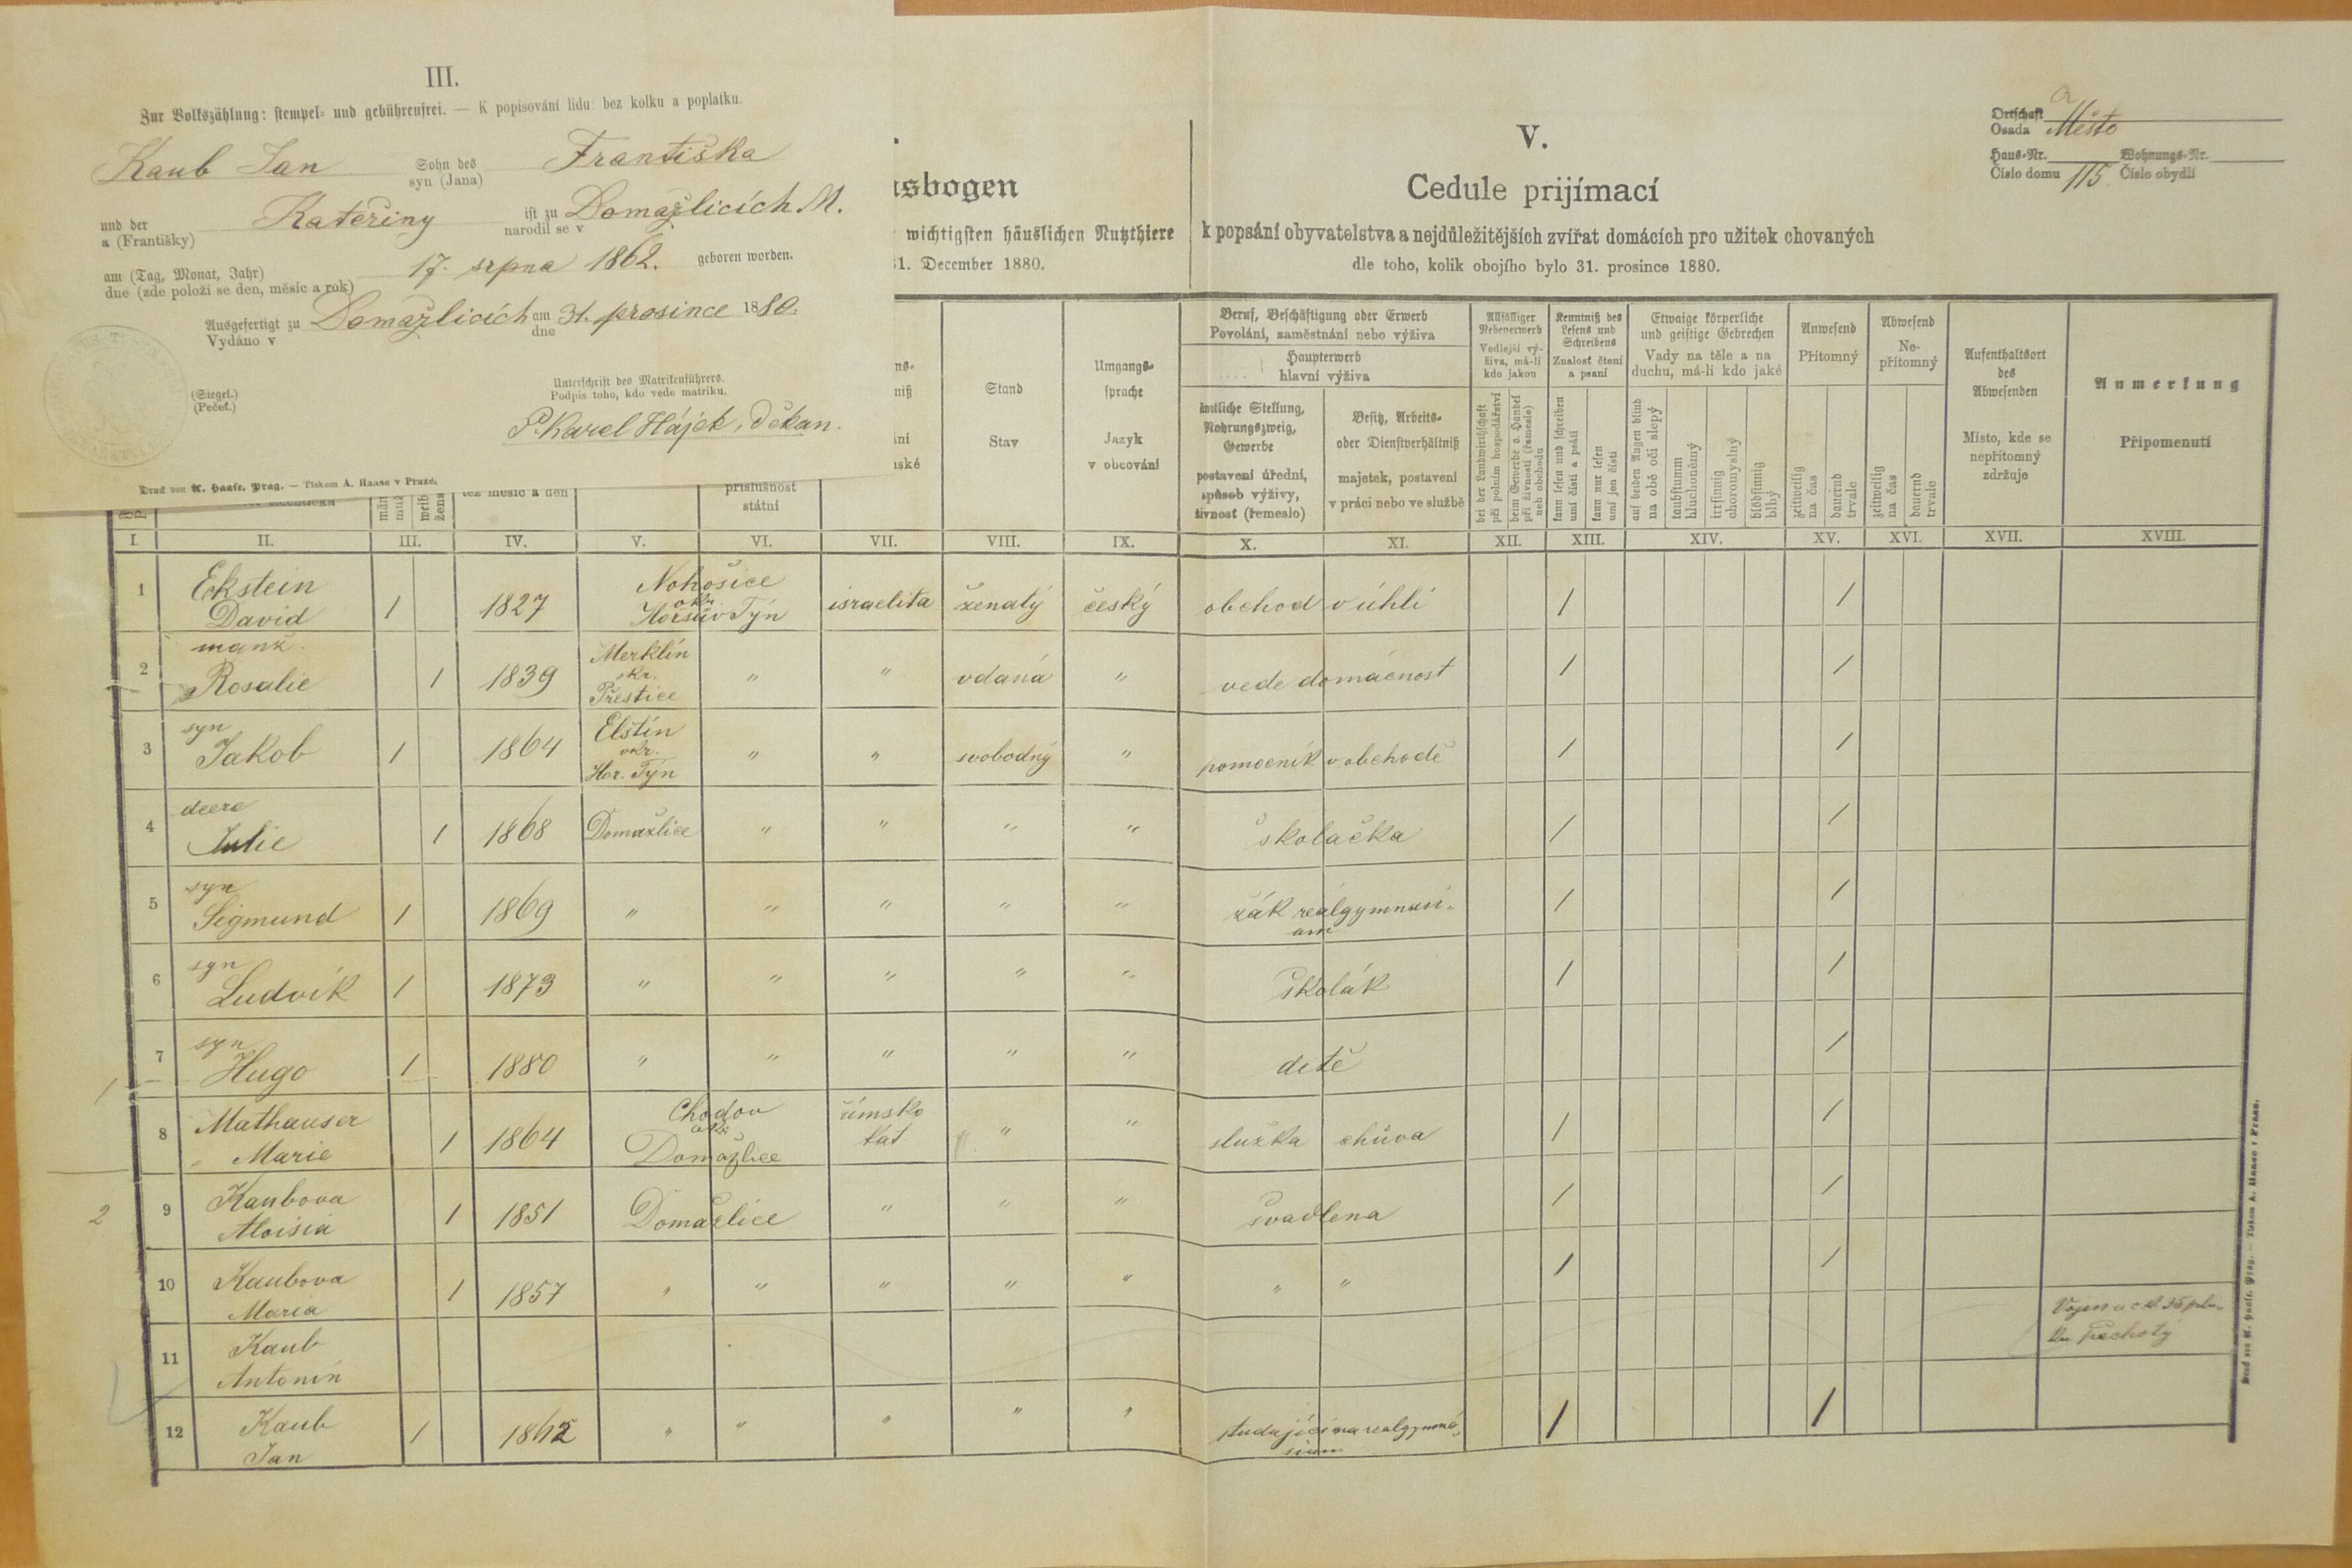 III.
Zur Volkszählung: stempel- und gebührenfrei. — K popisování lidu: bez kolku a poplatku.
Kaub Jan Sohn des syn (Jana) Františka
und der a (Františky) Kateřiny ist zu narodil se v Domažlicích M.
am (Tag, Monat, Jahr) dne (zde položí se den, měsíc a rok) 17. srpna 1862. geboren worden.
Ausgefertigt zu Vydáno v Domažlicích am dne 31. prosince 1880.
(Siegel.)
(Pečeť.)
Unterschrift des Matrikenführers.
Podpis toho, kdo vede matriku.
P. Karel Hájek, Děkan.
Druck von A. Haase, Prag. — Tiskem A. Haase v Praze.
sbogen
wichtigsten häuslichen Nutzthiere
31. December 1880.
V.
Cedule prijímací
k popsání obyvatelstva a nejdůležitějších zvířat domácích pro užitek chovaných
dle toho, kolik obojího bylo 31. prosince 1880.
Ortschaft
Osada Město
Haus-Nr. Wohnungs-Nr.
Číslo domu 115. Číslo obydlí
též měsíc a den
příslušnost
státní
Stand
Stav
Umgangs-
sprache
Jazyk
v obcování
Beruf, Beschäftigung oder Erwerb
Povolání, zaměstnání nebo výživa
Haupterwerb
hlavní výživa
amtliche Stellung,
Nahrungszweig,
Gewerbe
postavení úřední,
spůsob výživy,
živnost (řemeslo)
Besitz, Arbeits-
oder Dienstverhältniß
majetek, postavení
v práci nebo ve službě
Allfälliger
Nebenerwerb
Vedlejší vý-
živa, má-li
kdo jakou
bei der Landwirthschaft
při polním hospodářství
beim Gewerbe o. Handel
při živnosti (řemesle)
neb obchodu
Kenntniß des
Lesens und
Schreibens
Znalost čtení
a psaní
kann lesen und schreiben
umí čísti a psáti
kann nur lesen
umí jen čísti
Etwaige körperliche
und geistige Gebrechen
Vady na těle a na
duchu, má-li kdo jaké
auf beiden Augen blind
na obě oči slepý
taubstumm
hluchoněmý
irrsinnig
choromyslný
blödsinnig
blbý
Anwesend
Přítomný
zeitweilig
na čas
dauernd
trvale
Abwesend
Ne-
přítomný
zeitweilig
na čas
dauernd
trvale
Aufenthaltsort
des
Abwesenden
Místo, kde se
nepřítomný
zdržuje
Anmerkung
Připomenutí
I. II. III. IV. V. VI. VII. VIII. IX. X. XI. XII. XIII. XIV. XV. XVI. XVII. XVIII.
1 Eckstein David 1 1827 Nohošice okr. Horšův Týn israelita ženatý český obchod v úhlí / /
2 manž. Rosalie 1 1839 Merklín okr. Přestice " " vdaná " vede domácnost / /
3 syn Jakob 1 1864 Elštín okr. Hor. Týn " " svobodný " pomocník v obchodě / /
4 dcera Julie 1 1868 Domažlice " " " " školačka / /
5 syn Sigmund 1 1869 " " " " " žák reálgymnasi- um / /
6 syn Ludvík 1 1873 " " " " " školák / /
7 syn Hugo 1 1880 " " " " " dítě /
1
8 Mathauser Marie 1 1864 Chodov okr. Domažlice římsko kat " " služka chůva / /
2
9 Kaubova Aloisia 1 1851 Domažlice " " " švadlena / /
10 Kaubova Maria 1 1857 " " " " " " " / /
11 Kaub Antonín pěchoty
12 Kaub Jan 1 1862 " " " " " studující na realgymná- sium / /
Druck von A. Haase, Prag. — Tiskem A. Haase v Praze.